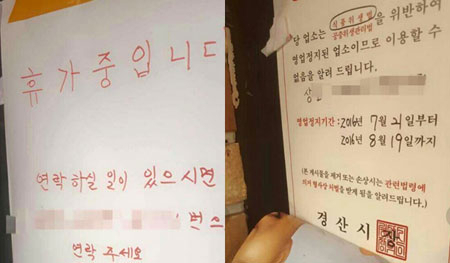 휴가중입니다
연락 하실 일이 있으시면
번으
연락 주세요
당 업소는 식품위생법
공중위생관리법 을 위반하여
영업정지된 업소이므로 이용할 수
없음을 알려 드립니다.
영업정지기간 : 2016년 7월 21일부터
2016년 8월 19일까지
(본 게시물을 제거 또는 손상시는 관련법령에
의거 형사상 처벌을 받게 됨을 알려드립니다.)
경 산 시 장